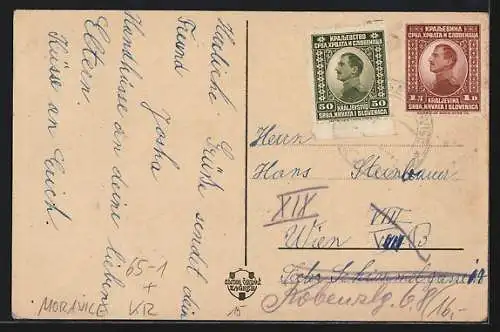 Herzliche Grüße sendet dein
Freund
Joska
Handküsse an deine lieben
Eltern.
Küsse an Erich.
65-1
+
VR
MORAVICE
15
КРАЉЕВСТВО
СРБА, ХРВАТА И СЛОВЕНАЦА
50 50
KRALJEVSTVO
SRBA, HRVATA I SLOVENACA
КРАЉЕВИНА
СРБА, ХРВАТА И СЛОВЕНАЦА
1 Д 1 D
KRALJEVINA
SRBA, HRVATA I SLOVENACA
Herrn
Hans Steinbauer
XIX
VIII
Wien
Kobenzlg. 68/16.-